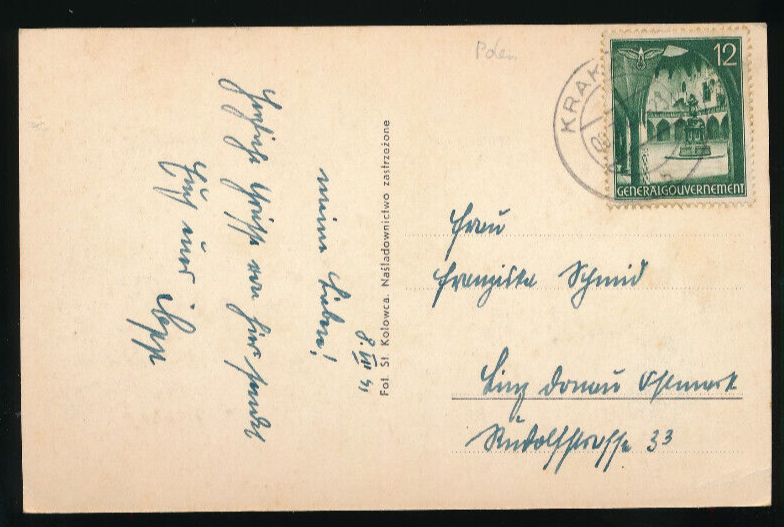 Polen
KRAK
12
GENERALGOUVERNEMENT
Fot. St. Kolowca. Naśladownictwo zastrzeżone
8. VII 41
meine Lieben!
Herzliche Grüsse von hier sendet
Euch euer Sepp
Frau
Franziska Schmid
Linz Donau Ostmark
Rudolfstrasse 33